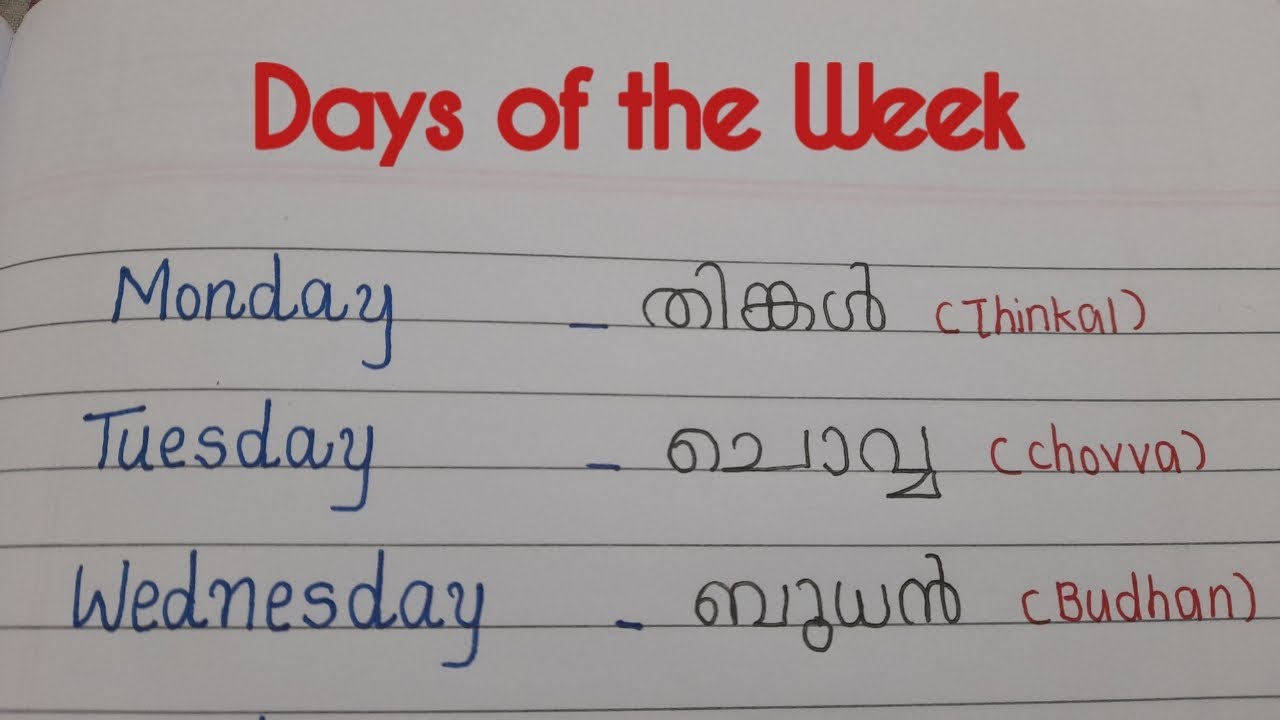 Days of the Week
Monday - തിങ്കൾ (Thinkal)
Tuesday - ചൊവ്വ (Chovva)
Wednesday - ബുധൻ (Budhan)